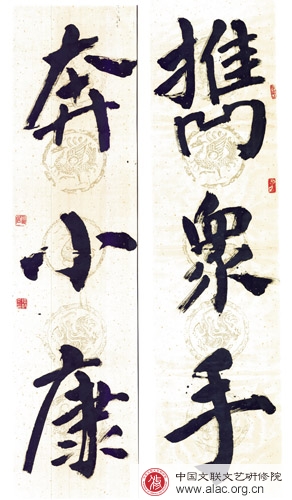 攜眾手
奔小康
中国文联文艺研修院
www.alac.org.cn